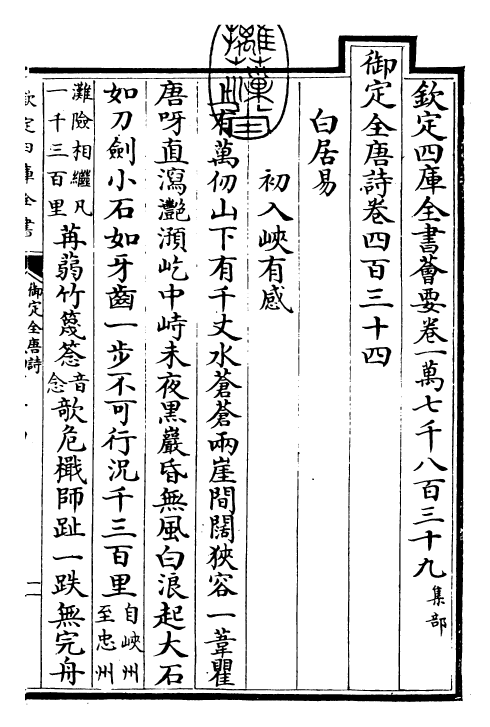 欽定四庫全書薈要卷一萬七千八百三十九 集部
御定全唐詩卷四百三十四
白居易
初入峽有感
上有萬仞山下有千丈水蒼蒼兩崖間闊狹容一葦瞿
唐呀直瀉灩澦屹中峙未夜黑巖昏無風白浪起大石
如刀劍小石如牙齒一步不可行況千三百里 自峽州至忠州
灘險相繼凡一千三百里 苒蒻竹篾䉞 音念 欹危檝師趾一跌無完舟
欽定四庫全書
御定全唐詩